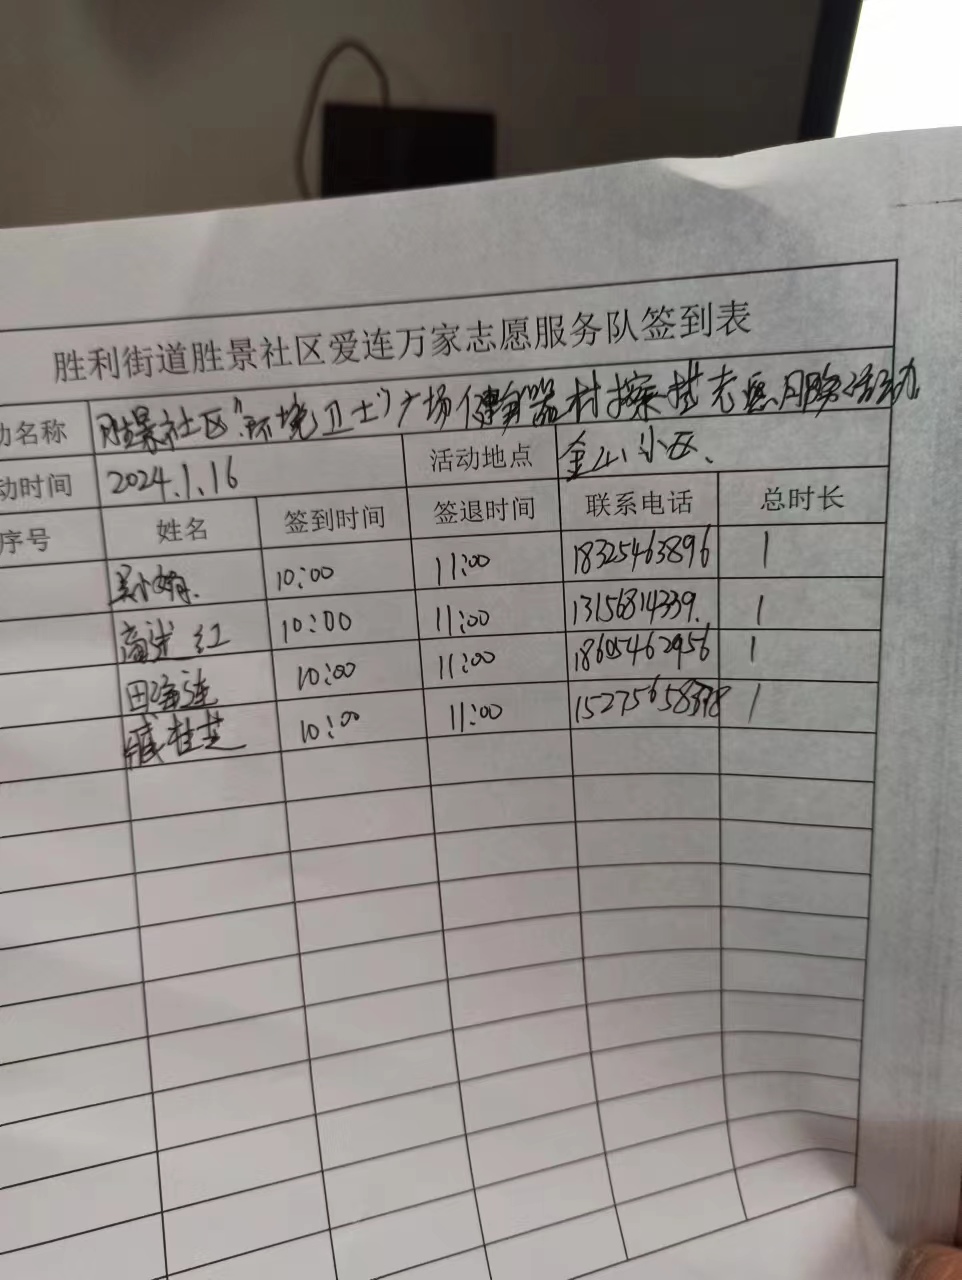 胜利街道胜景社区爱连万家志愿服务队签到表
动名称 胜景社区"环境卫士"广场健身器材擦拭志愿服务活动
动时间 2024.1.16 活动地点 金山小区、
序号 姓名 签到时间 签退时间 联系电话 总时长
10:00 11:00 18325463896 1
红 10:00 11:00 13156814339. 1
田 10:00 11:00 18605462956 1
臧桂芝 10:00 11:00 1